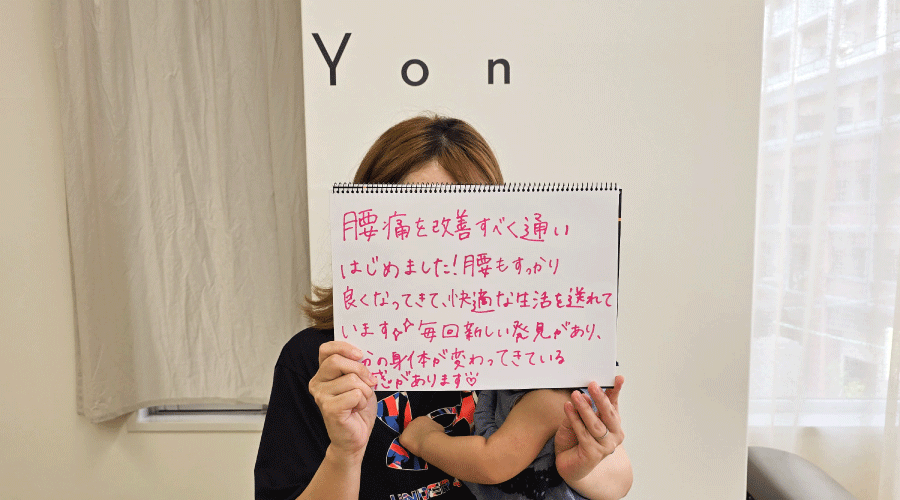 Yon
腰痛を改善すべく通い
はじめました!腰もすっかり
良くなってきて、快適な生活を送れて
います✨毎回新しい発見があり、
分の身体が変わってきている
感があります♡
UNDER